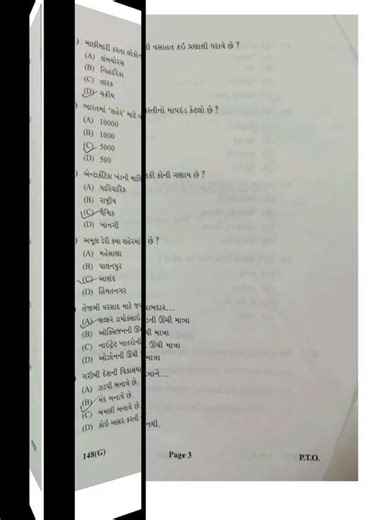 ) માછીમારી કરતા લોકોન ી વસાહત કઈ પ્રણાલી ધરાવે છે ?
(A) લંબચોરસ
(B) નિહારિકા
(C) તારક
(D) ચક્રીય
) ભારતમાં 'શહેર' માટે વ સ્તીનો માપદંડ કેટલો છે ?
(A) 10000
(B) 1000
(C) 5000
(D) 500
) એન્ટાર્કટિકા ખંડની માલિ કી કોની ગણાય છે ?
(A) પારિવારિક
(B) રાષ્ટ્રીય
(C) વૈશ્વિક
(D) ખાનગી
) અમુલ ડેરી કયા શહેરમાં છે ?
(A) મહેસાણા
(B) પાલનપુર
(C) આણંદ
(D) હિંમતનગર
) તેજાબી વરસાદ માટે જવ ાબદાર...
(A) સલ્ફર ડાયોક્સાઈ ડની ઊંચી માત્રા
(B) ઓક્સિજનની ઊં ચી માત્રા
(C) નાઈટ્રેટ ખાતરોની ઊંચી માત્રા
(D) ઓઝોનની ઊંચી માત્રા
) ગરીબી દેશની વિકાસયા ત્રાને...
(A) ઝડપી બનાવે છે.
(B) મંદ બનાવે છે.
(C) બમણી બનાવે છે.
(D) કોઈ અસર કરતી નથી.
148(G) Page 3 P.T.O.